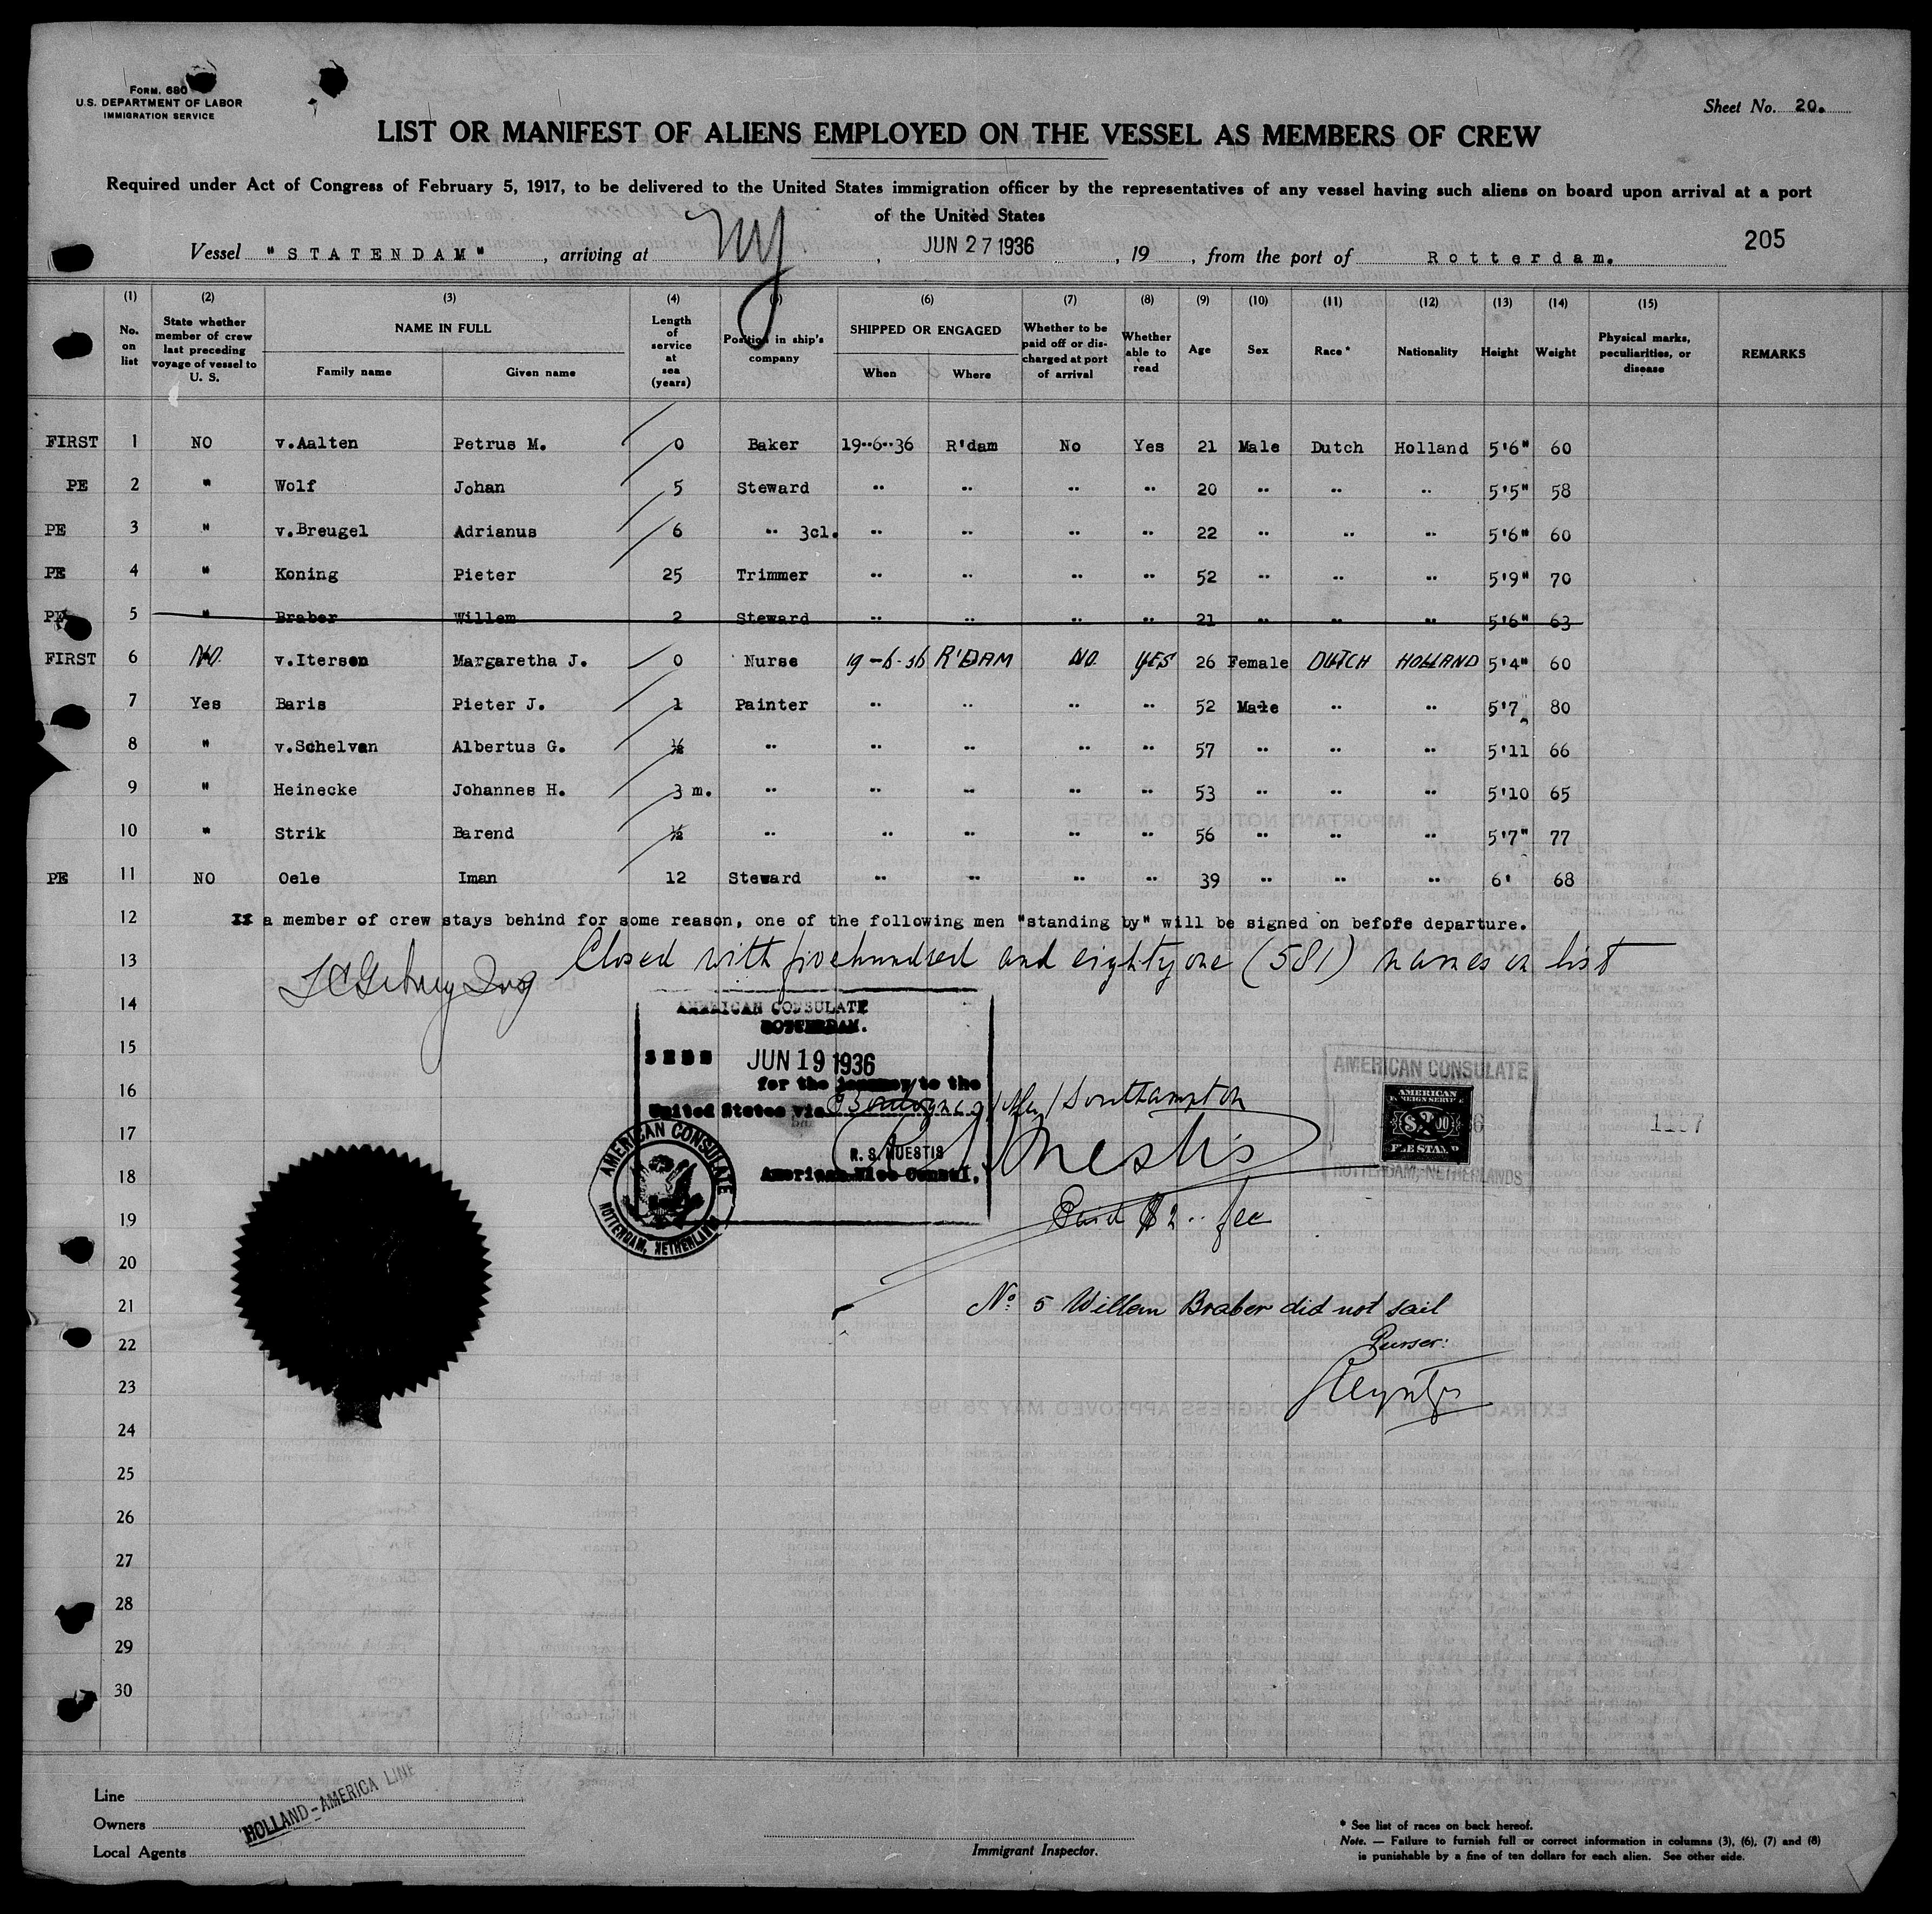 Form 680
U.S. DEPARTMENT OF LABOR
IMMIGRATION SERVICE
Sheet No. 20.
LIST OR MANIFEST OF ALIENS EMPLOYED ON THE VESSEL AS MEMBERS OF CREW
Required under Act of Congress of February 5, 1917, to be delivered to the United States immigration officer by the representatives of any vessel having such aliens on board upon arrival at a port
of the United States
205
Vessel "STATENDAM", arriving at NY, JUN 27 1936, 19 , from the port of Rotterdam.
(1) (2) (3) (4) (5) (6) (7) (8) (9) (10) (11) (12) (13) (14) (15)
No. on list State whether member of crew last preceding voyage of vessel to U. S. NAME IN FULL Family name Given name Length of service at sea (years) Position in ship's company SHIPPED OR ENGAGED When Where Whether to be paid off or discharged at port of arrival Whether able to read Age Sex Race* Nationality Height Weight Physical marks, peculiarities, or disease REMARKS
FIRST 1 NO v.Aalten Petrus M. 0 Baker 19..6..36 R'dam No Yes 21 Male Dutch Holland 5'6" 60
PE 2 " Wolf Johan 5 Steward .. .. .. .. 20 .. .. .. 5'5" 58
PE 3 " v.Breugel Adrianus 6 .. 3cl. .. .. .. .. 22 .. .. .. 5'6" 60
PE 4 " Koning Pieter 25 Trimmer .. .. .. .. 52 .. .. .. 5'9" 70
PE 5 " Braber Willem 2 Steward .. .. .. .. 21 .. .. .. 5'6" 63
FIRST 6 NO. v.Iterson Margaretha J. 0 Nurse 19-6-36 R'DAM NO YES 26 Female DUTCH HOLLAND 5'4" 60
7 Yes Baris Pieter J. 1 Painter .. .. .. .. 52 Male .. .. 5'7 80
8 " v.Schelvan Albertus G. ½ .. .. .. .. .. 57 .. .. .. 5'11 66
9 " Heinecke Johannes H. 3 m. .. .. .. .. .. 53 .. .. .. 5'10 65
10 " Strik Barend ½ .. .. .. .. .. 56 .. .. .. 5'7" 77
PE 11 NO Oele Iman 12 Steward .. .. .. .. 39 .. .. .. 6' 68
12 If a member of crew stays behind for some reason, one of the following men "standing by" will be signed on before departure.
13 Closed with fivehundred and eightyone (581) names on list
14
AMERICAN CONSULATE
ROTTERDAM.
15
SEEN JUN 19 1936
for the journey to the
16
United States via Boulogne s/Mer/Southampton
17
R. S. HUESTIS
Huestis
18
American Vice Consul.
AMERICAN CONSULATE
ROTTERDAM, NETHERLAND
AMERICAN CONSULATE
AMERICAN
FOREIGN SERVICE
$2.00
FEE STAMP
ROTTERDAM, NETHERLANDS
19 Paid $2.. fee
20
21 No: 5 Willem Braber did not sail
22 Purser:
23
24
25
26
27
28
29
30
Line
HOLLAND-AMERICA LINE
Owners
Local Agents
Immigrant Inspector.
* See list of races on back hereof.
Note. — Failure to furnish full or correct information in columns (3), (6), (7) and (8)
is punishable by a fine of ten dollars for each alien. See other side.